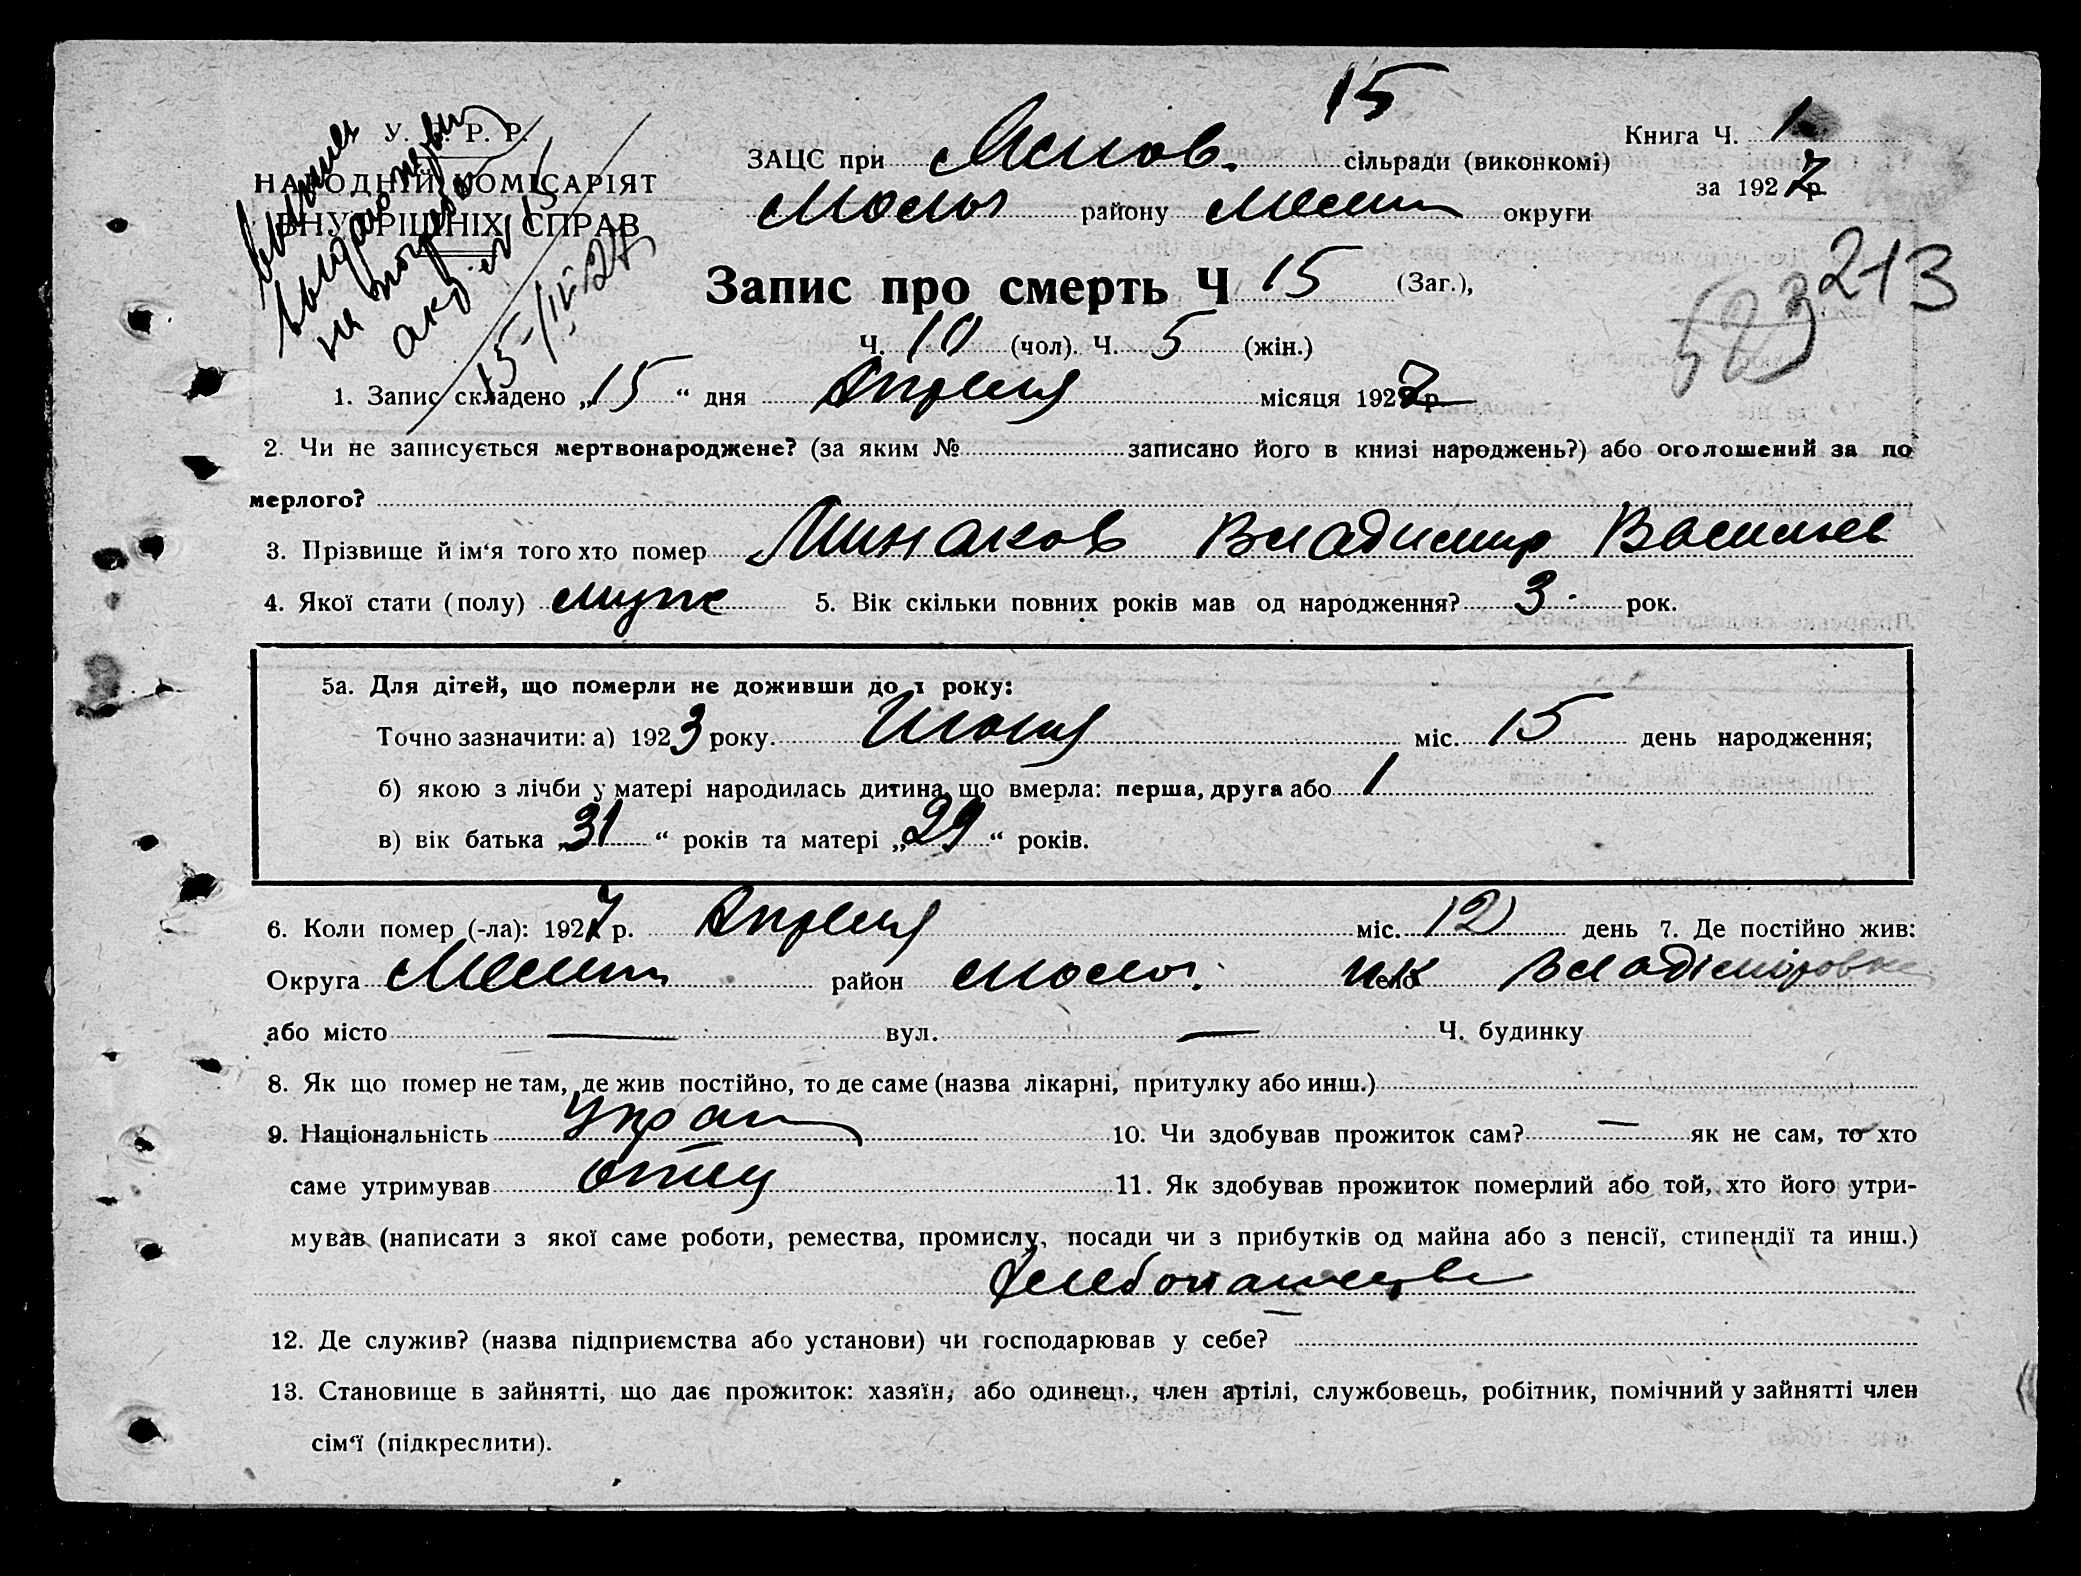 15
У. Р. Р.
НАРОДНІЙ КОМІСАРІЯТ
ВНУТРІШНІХ СПРАВ
ЗАЦС при сільради (виконкомі)
Молоч району Мелит округи
Книга Ч. 1
за 1927 р.
213
523
Запис про смерть Ч 15 (Заг.),
Ч. 10 (чол). Ч. 5 (жін.)
1. Запис складено „15“ дня Апреля місяця 1927 р.
2. Чи не записується мертвонароджене? (за яким № записано його в книзі народжень?) або оголошений за по
мерлого?
3. Прізвище й ім‘я того хто помер Минаков Владимир Васильев
4. Якої стати (полу) муж 5. Вік скільки повних років мав од народження? 3 рок.
5а. Для дітей, що померли не доживши до 1 року:
Точно зазначити: а) 1923 року Июня міс. 15 день народження;
б) якою з лічби у матері народилась дитина, що вмерла: перша, друга або 1
в) вік батька „31“ років та матері „29“ років.
6. Коли помер (-ла): 1927 р. Апреля міс. 12 день 7. Де постійно жив:
Округа Мелит район молоч. село Владімровка
або місто — вул. — Ч. будинку
8. Як що помер не там, де жив постійно, то де саме (назва лікарні, притулку або инш.)
9. Національність Украин 10. Чи здобував прожиток сам? — як не сам, то хто
саме утримував отец 11. Як здобував прожиток померлий або той, хто його утри-
мував (написати з якої саме роботи, ремества, промислу, посади чи з прибутків од майна або з пенсії, стипендії та инш.)
Хлебопашество
12. Де служив? (назва підприємства або установи) чи господарював у себе?
13. Становище в зайнятті, що дає прожиток: хазяїн, або одинець, член артілі, службовець, робітник, помічний у зайнятті член
сім‘ї (підкреслити).